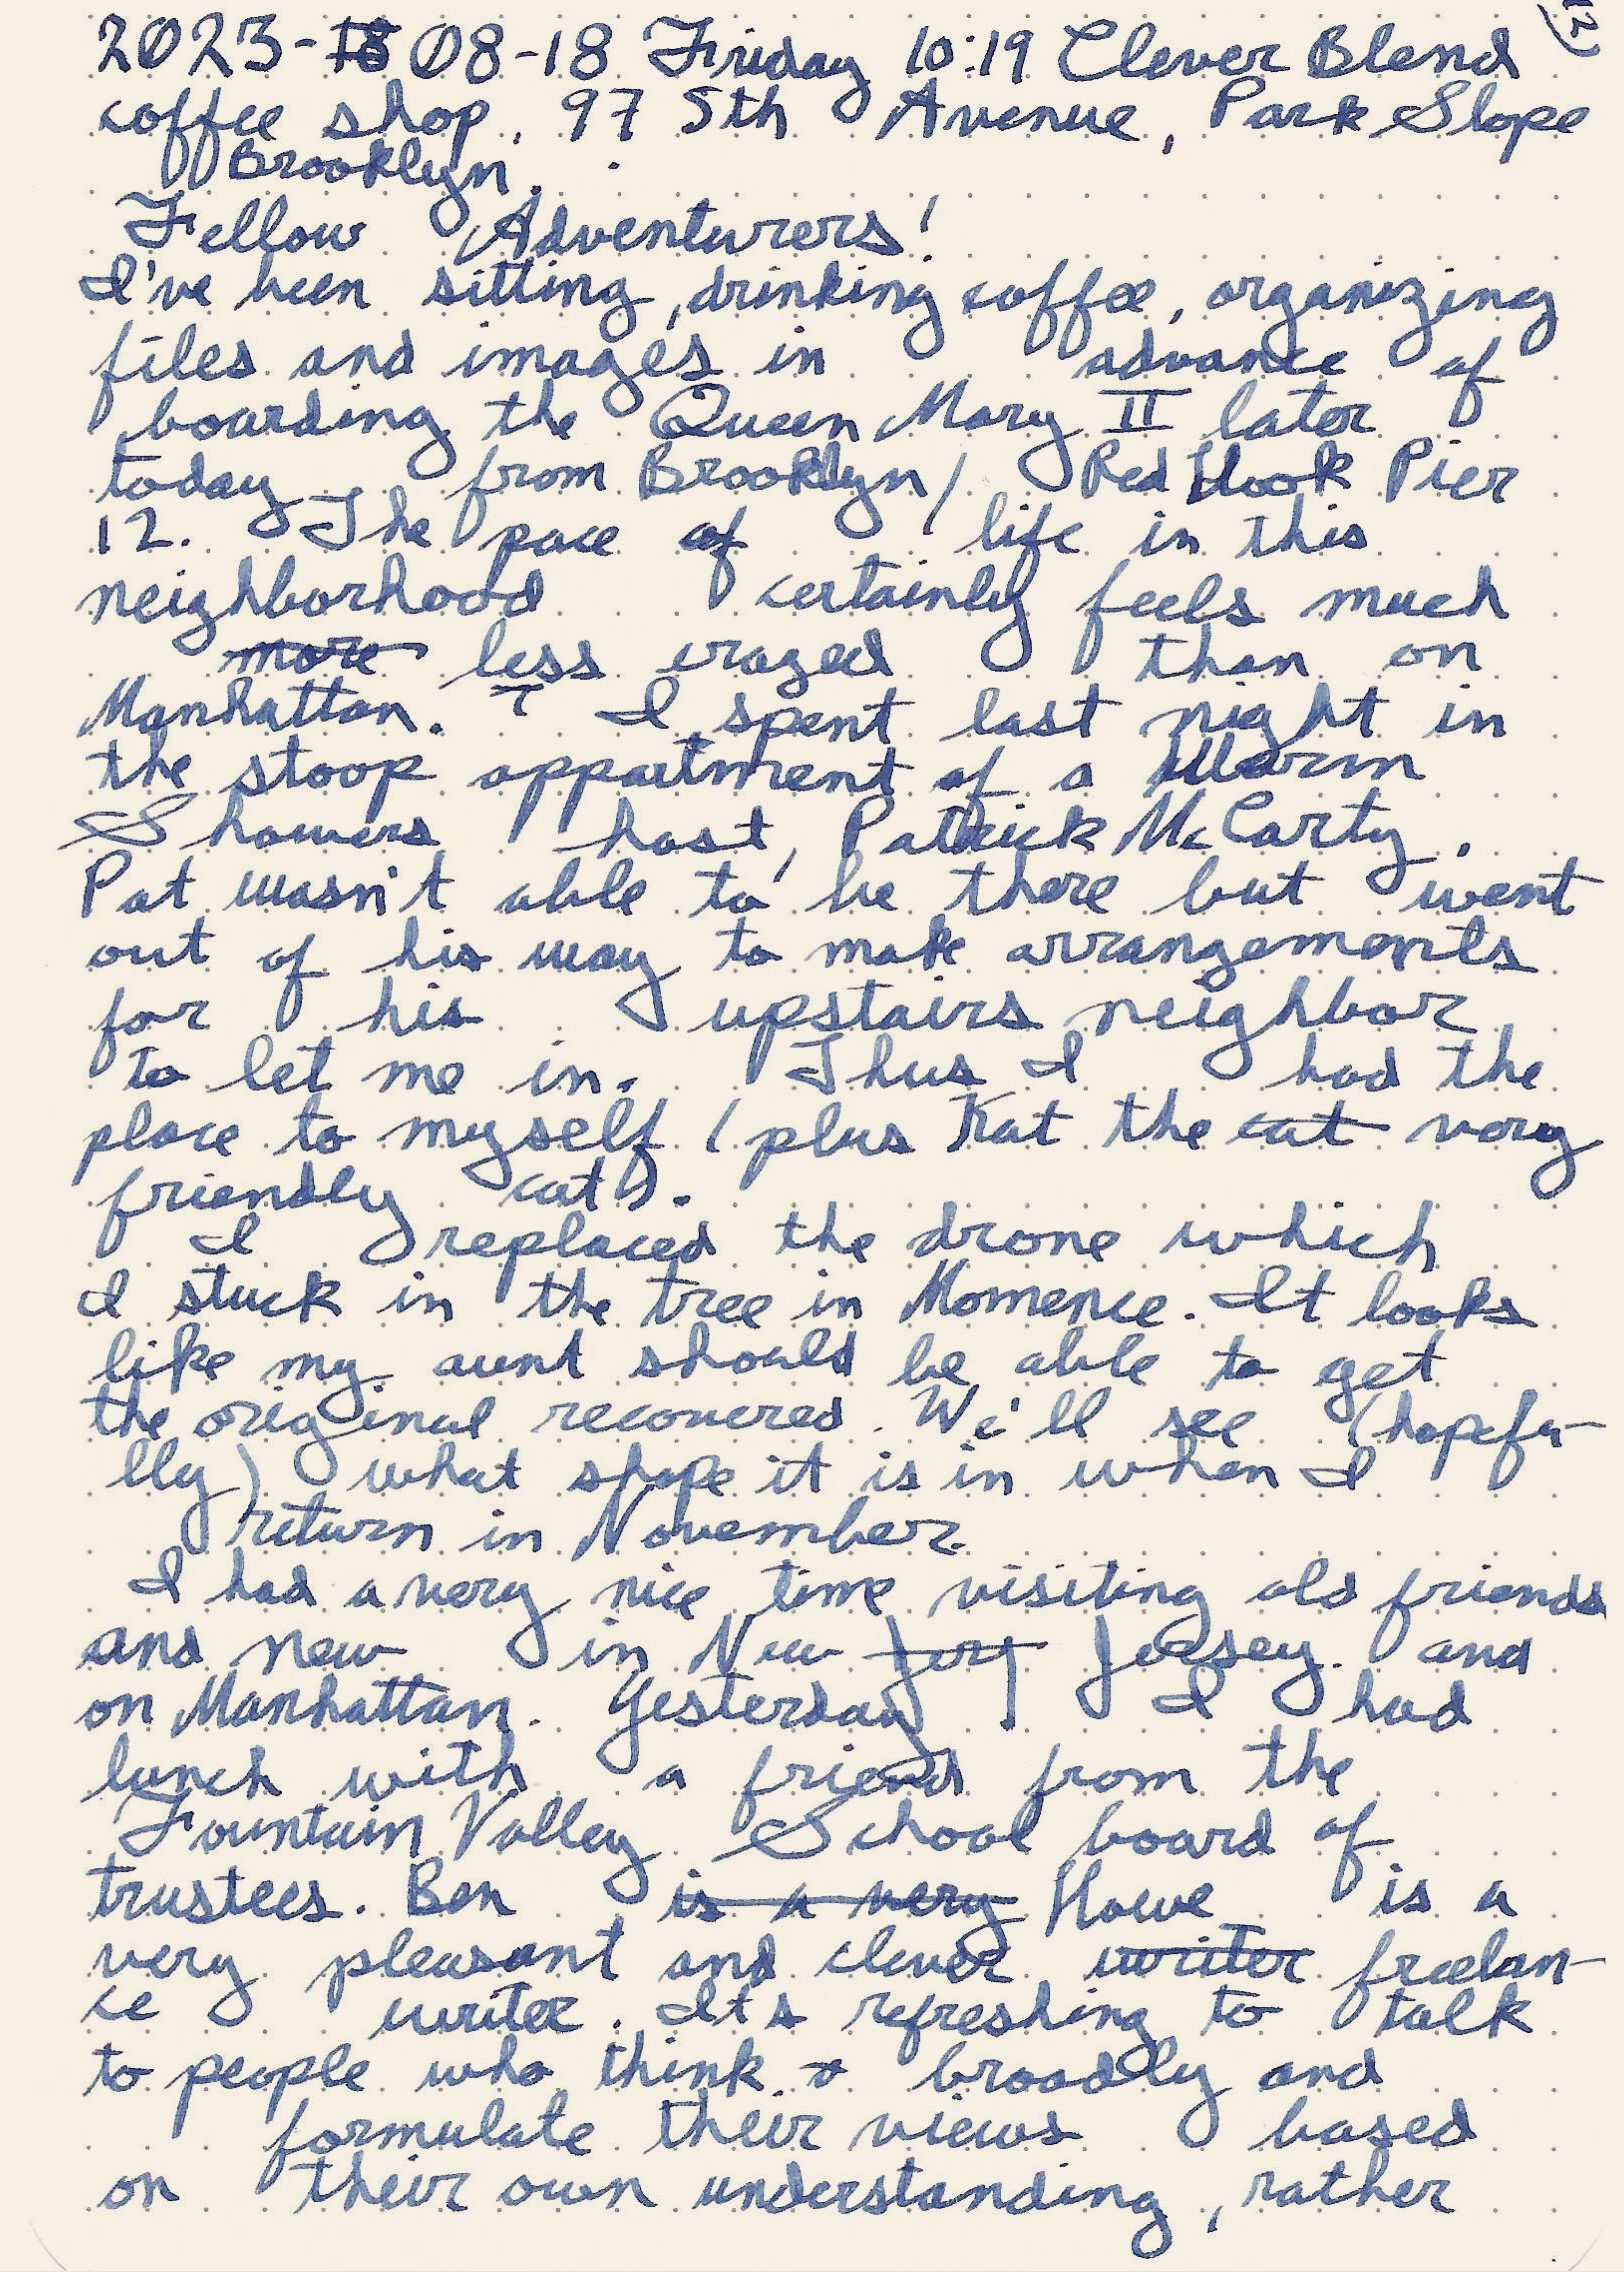 12
2023-18 08-18 Friday 10:19 Clever Blend
coffee shop, 97 5th Avenue, Park Slope
Brooklyn.
Fellow Adventurers!
I've been sitting, drinking coffee, organizing
files and images in advance of
boarding the Queen Mary II later
today from Brooklyn/Red Hook Pier
12. The pace of life in this
neighborhood certainly feels much
more less crazed than on
Manhattan. I spent last night in
the stoop appartment of a Warm
Showers host, Patrick McCarty.
Pat wasn't able to be there but went
out of his way to make arrangements
for his upstairs neighbor
to let me in. Thus I had the
place to myself (plus Kat the cat very
friendly cat).
I replaced the drone which
I stuck in the tree in Momence. It looks
like my aunt should be able to get
the original recovered. We'll see (hopefu-
lly) what shape it is in when I
return in November.
I had a very nice time visiting old friends
and new in New Jery Jersey and
on Manhattan. Yesterday I had
lunch with a friend from the
Fountain Valley School board of
trustees. Ben is a very Howe is a
very pleasant and clever writer freelan-
ce writer. It's refreshing to talk
to people who think broadly and
formulate their views based
on their own understanding, rather